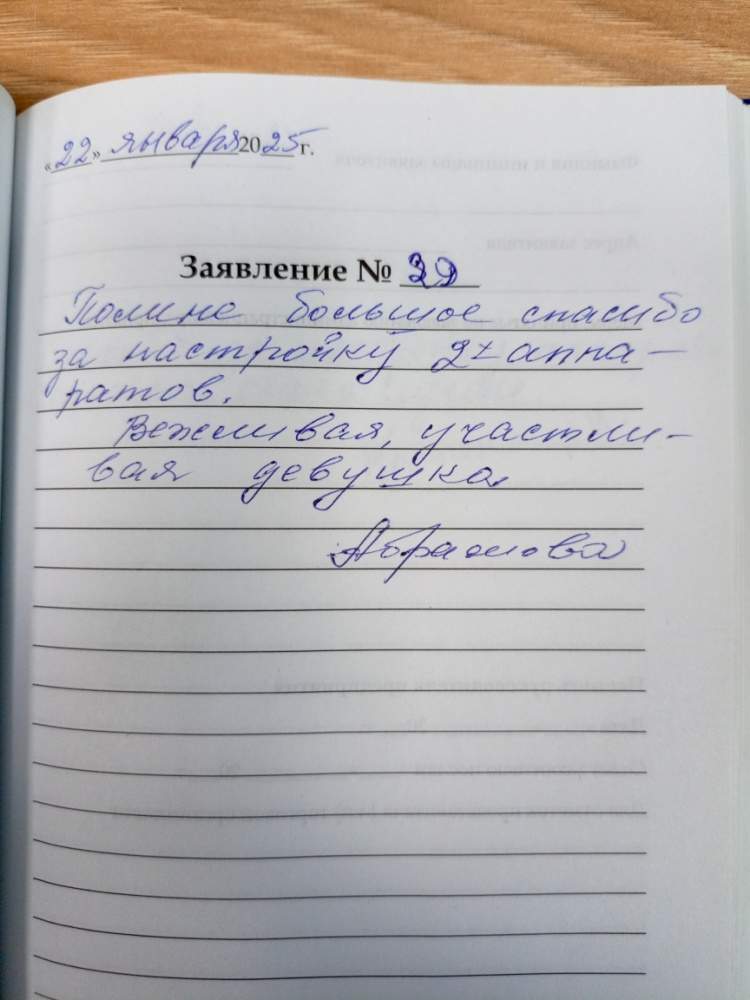 «22» января 2025 г.
Заявление № 39
Полине большое спасибо
за настройку 2х аппа-
ратов.
Вежливая, участли-
вая девушка.
Абрамова